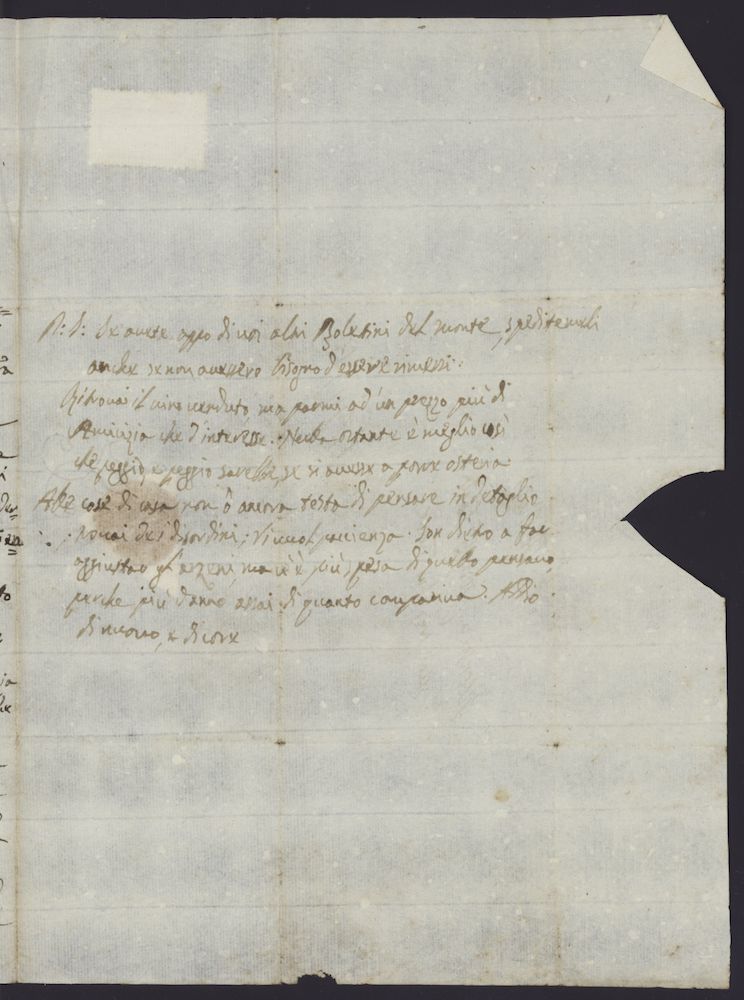 P: S: Se avete appo di voi altri Boletini del monte, speditemeli
anche se non avessero bisogno d'essere rimessi.
Ritrovai il vino venduto, ma parmi ad un prezzo più di
Amicizia che d'interesse. Nulla ostante è meglio così
che peggio, e peggio sarebbe se si avesse a porre osteria
Alle cose di casa non ò ancora testa di pensare in detaglio.
dei disordini; vi vuol pacienza. Son dietro a far
ma v'è più spesa di quello pensavo,
perche più danno assai di quanto compariva. Addio
di nuovo, e di core